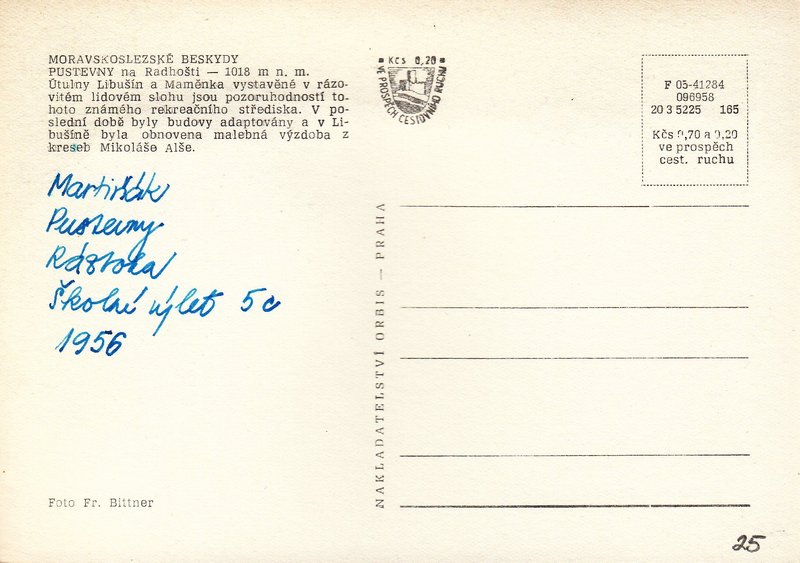 MORAVSKOSLEZSKÉ BESKYDY
PUSTEVNY na Radhošti — 1018 m n. m.
Útulny Libušín a Maměnka vystavěné v rázo-
vitém lidovém slohu jsou pozoruhodností to-
hoto známého rekreačního střediska. V po-
slední době byly budovy adaptovány a v Li-
bušíně byla obnovena malebná výzdoba z
kreseb Mikoláše Alše.
Kčs 0,20
VE PROSPĚCH CESTOVNÍHO RUCHU
F 05-41284
096958
20 3 5225 165
Kčs 0,70 a 0,20
ve prospěch
cest. ruchu
Martiňák
Pustevny
Ráztoka
Školní výlet 5c
1956
NAKLADATELSTVÍ ORBIS — PRAHA
Foto Fr. Bittner
25